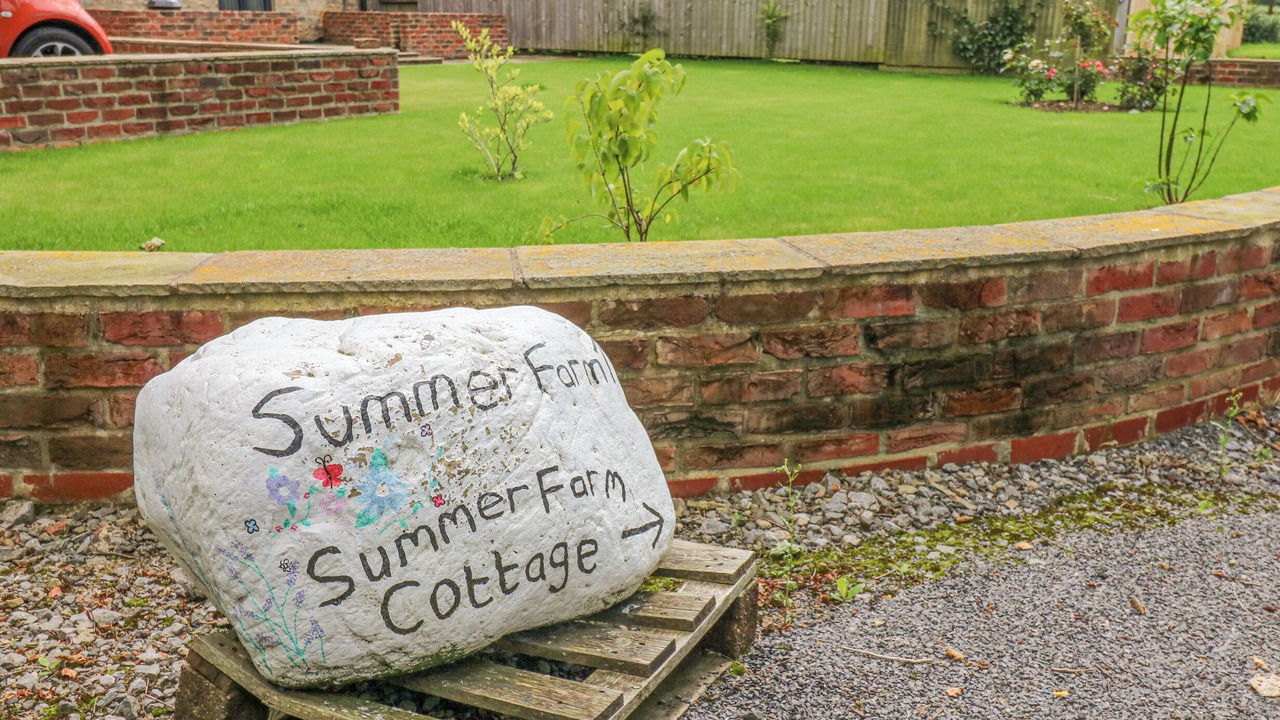 Summer Farm
Summer Farm
Cottage →